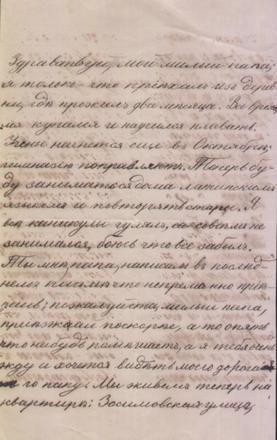 Здравствуй, мой милый папа;
я только-что пріѣхалъ изъ дерев
ни, гдѣ прожилъ два мѣсяца. Во вре
мя купался и научился плавать.
начнется еще въ Октябрѣ,
гимназію поправляютъ. Теперь бу
ду заниматься дома латинскимъ
языкомъ и повторять старое. Я
всѣ каникулы гулялъ, совсѣмъ не
занимался, боюсь что все забылъ.
Ты мнѣ, папа, написалъ въ послѣд
немъ письмѣ что непремѣнно прі
ѣдешь; пожалуйста, милый папа,
пріѣзжай поскорѣе, а то опять
что нибудь помѣшаетъ, а я тебя очень
жду и хочется видѣть моего дорога
го папу. Мы живемъ теперь на
квартирѣ: Зосимовская улица,